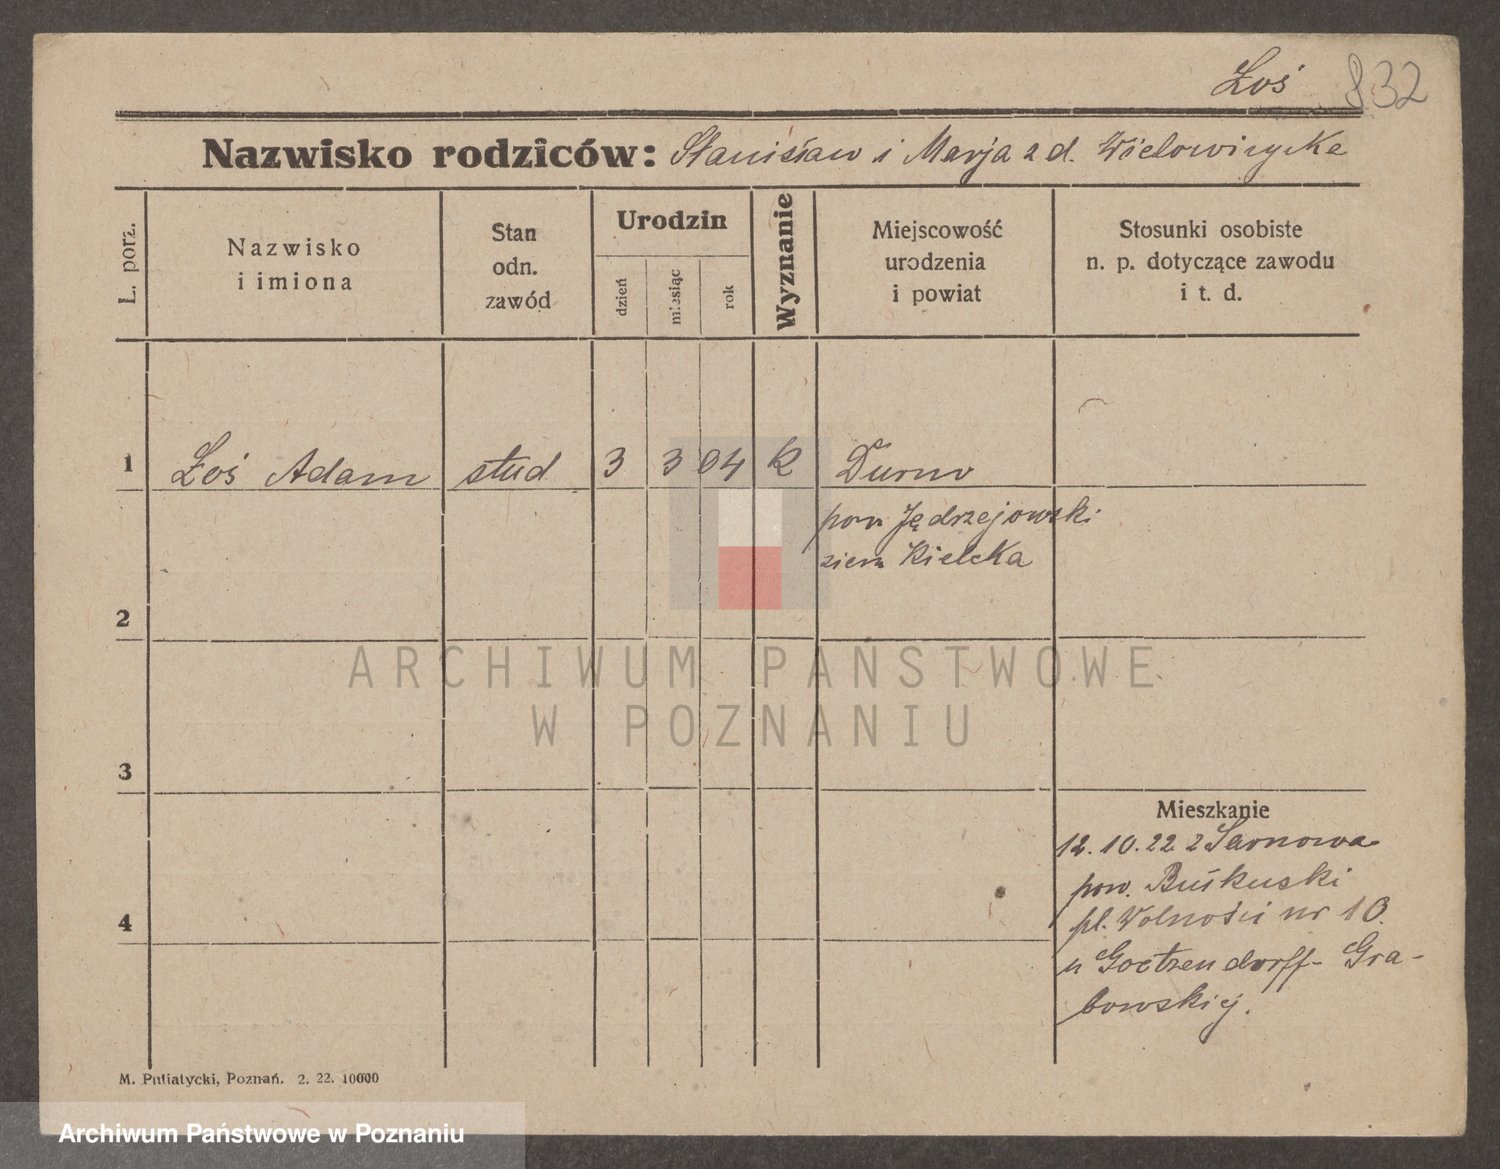 Łoś 832
Nazwisko rodziców: Stanisław i Marja z d. Wielowieyska
L. porz.
Nazwisko
i imiona
Stan
odn.
zawód
Urodzin
dzień
miesiąc
rok
Wyznanie
Miejscowość
urodzenia
i powiat
Stosunki osobiste
n. p. dotyczące zawodu
i t. d.
1 Łoś Adam stud 3 3 04 k
pow Jędrzejowski
ziem Kielcka
2
3
4
Mieszkanie
12.10.22 z Sarnowa
pow.
pl. Wolności nr 10.
u Goetzendorff-Gra-
bowskiej.
M. Putiatycki, Poznań. 2. 22. 10000
ARCHIWUM PAŃSTWOWE
W POZNANIU
Archiwum Państwowe w Poznaniu